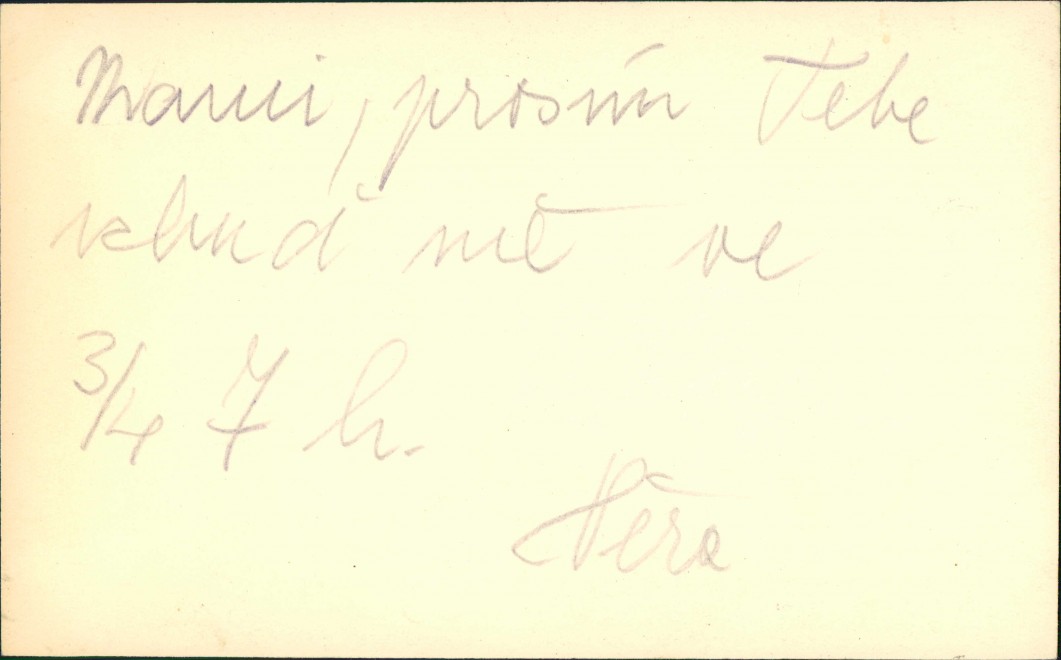 Mami, prosím Tebe
vzbuď mě ve
3/4 7 h.
Věra